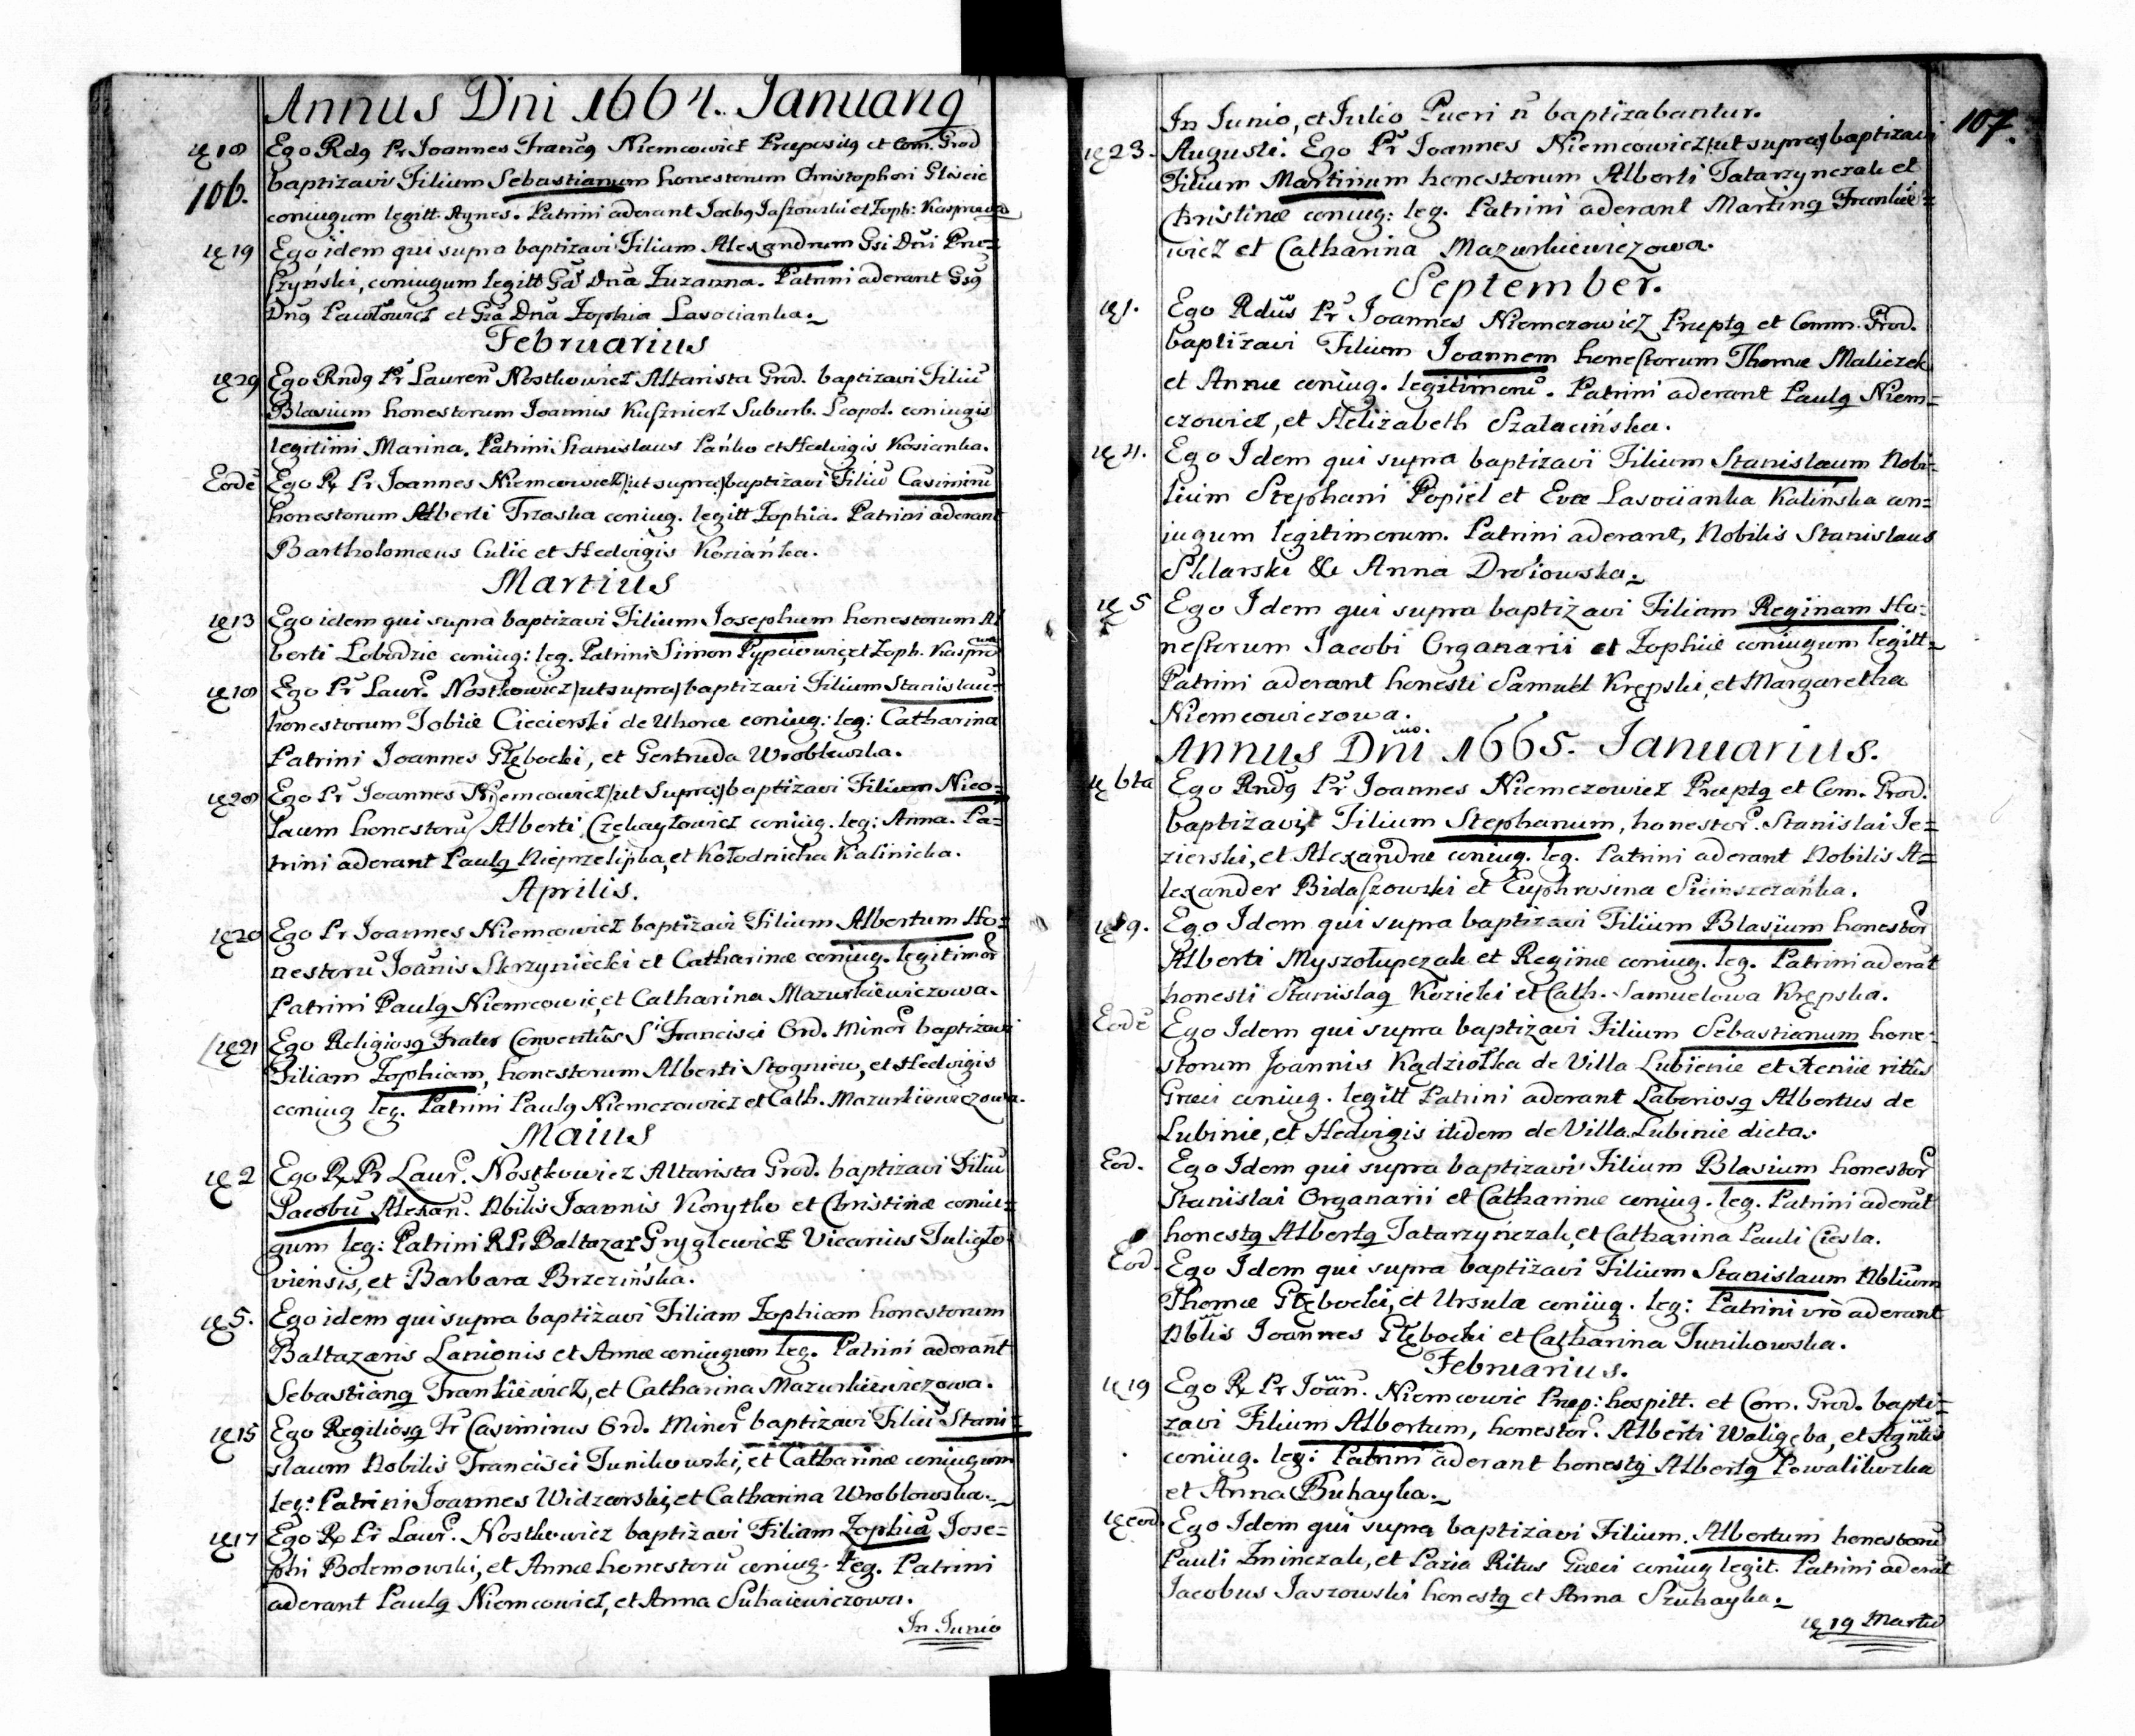 Annus Dni 1664. Januarig
ie 18 Ego Rdg Pr Joannes Francg Niemcowicz Præpositg et Com. Grod
106. baptizavi Filium Sebastianum honestorum Christophori Gloscic
coniugum legitt Agnes. Patrini aderant Jacbg Jaszowski et Zoph: Kasprowa
ie 19 Ego idem qui supra baptizavi Filium Alexandrum Gsi Dni Pru=
szyński, coniugum legitt Ga Dna Zuzanna. Patrini aderant Gsg
Dng Pawłowicz et Gza Dna Zophia Lasocianka.
Februarius
ie 29 Ego Rndg Pr Lauren Nostkowicz Altarista Grod. baptizavi Filiū
Blasium honestorum Joannis Kusznierz Suburb. Leopol. coniugis
legitimi Marina. Patrini Stanislaus Pańko et Hedvigis Kosianka.
Eodē Ego Rx Pr Joannes Niemcowicz/:ut supra:/baptizavi Filiū Casimirū
honestorum Alberti Trzaska coniug. legitt Zophia. Patrini aderant
Bartholomæus Culic et Hedvigis Koziańka.
Martius
ie 13 Ego idem qui supra baptizavi Filium Josephum honestorum Al
berti Lobodzic coniug: leg. Patrini Simon Pypciowic, et Zoph. Kasprowa
ie 18 Ego Pr Laur. Nostkowicz/ut supra/baptizavi Filium Stanislau=
honestorum Tobiæ Ciecierski de Uhorce coniug: leg: Catharina
Patrini Joannes Głębocki, et Gertruda Wroblewska.
ie 28 Ego Pr Joannes Niemcowicz/:ut Supra:/baptizavi Filium Nico=
laum honestorū Alberti Czekayłowicz coniug. leg: Anna. Pa=
trini aderant Paulg Nieprzelipka, et Kołodnicka Kalinicka.
Aprilis.
ie 20 Ego Pr Joannes Niemcowicz baptizavi Filium Albertum Ho=
nestorū Joānis Skrzyniecki et Catharinæ coniug. legitimor
Patrini Paulg Niemcowic, et Catharina Mazurkiewiczowa.
ie 21 Ego Religiosg Frater Conventûs Si Francisci Ord. Minor baptizavi
Filiam Zophiam, honestorum Alberti Stogniew, et Hedvigis
coniug leg. Patrini Paulg Niemczowicz et Cath. Mazurkiewiczowa.
Maius
ie 2 Ego Rx Pr Laur. Nostkowicz Altarista Grod. baptizavi Filiū
Jacobū Alexan. Nbilis Joannis Korytko et Christinæ coniu=
gum leg: Patrini R Pr Baltazar Gryglewicz Vicarius Tuligło=
viensis, et Barbara Brzezińska.
ie 5. Ego idem qui supra baptizavi Filiam Zophiam honestorum
Baltazaris Lanionis et Annæ coniugum leg. Patrini aderant
Sebastiang Frankiewicz, et Catharina Mazurkiewiczowa.
ie 15 Ego Regiliosg Fr Casimirus Ord. Minor baptizavi Filiū Stani=
slaum Nobilis Francisci Tunikowski, et Catharinæ coniugum
leg: Patrini Joannes Widzewski, et Catharina Wroblowska.
ie 17 Ego Rx Pr Laur. Nostkowicz baptizavi Filiam Zophiā Jose=
phi Bolemowski, et Annæ honestorū coniug. leg. Patrini
aderant Paulg Niemcowicz, et Anna Suhaiewiczowa.
In Junio
107.
In Junio, et Julio Pueri ñ baptizabantur.
ie 23. Augusti. Ego Pr Joannes Niemcowicz/:ut supra:/baptizavi
Filium Martinum honestorum Alberti Tatarzynczak et
Christinæ coniug: leg. Patrini aderant Marting Frankie=
wicz et Catharina Mazurkiewiczowa.
September.
ie 1. Ego Rdus Pr Joannes Niemczowicz Præptg et Comm. Grod.
baptizavi Filium Joannem honestorum Thomæ Maliczek
et Annæ coniug. legitimorū. Patrini aderant Paulg Niem=
czowicz, et Helizabeth Szalacińska.
ie 4. Ego Idem qui supra baptizavi Filium Stanislaum Nobi=
lium Stephani Popiel et Evæ Lasocianka Kalińska con=
iugum legitimorum. Patrini aderant, Nobilis Stanislaus
Sklarski & Anna Droiowska.
ie 5 Ego Idem qui supra baptizavi Filiam Reginam Ho=
nestorum Jacobi Organarii et Zophiæ coniugum legitt=
Patrini aderant honesti Samuel Krępski, et Margaretha
Niemcowiczowa.
Annus Dni 1665. Januarius.
ie 6ta Ego Rndg Pr Joannes Niemczowicz Præptg et Com. Grod.
baptizavit Filium Stephanum, honestor. Stanislai Je=
zierski, et Alexandræ coniug. leg. Patrini aderant Nobilis A=
lexander Bidaszowski et Euphrosina Siemszczańka.
ie 19. Ego Idem qui supra baptizavi Filium Blasium honestor
Alberti Myszołupczak et Reginæ coniug. leg. Patrini aderāt
honesti Stanislag Kozicki et Cath. Samuelowa Krępska.
Eodē Ego Idem qui supra baptizavi Filium Sebastianum hone=
storum Joannis Kądziołka de Villa Lubienie et Xeniæ ritûs
Græci coniug. legitt Patrini aderant Laboriosg Albertus de
Lubinie, et Hedvigis itidem de Villa Lubinie dicta.
Eod. Ego Idem qui supra baptizavi Filium Blasium honestor
Stanislai Organarii et Catharinæ coniug. leg. Patrini aderāt
honestg Albertg Tatarzyńczak, et Catharina Pauli Ciesla.
Eod. Ego Idem qui supra baptizavi Filium Stanislaum Nblium
Thomæ Głębocki, et Ursulæ coniug. leg: Patrini vrò aderant
Nblis Joannes Głębocki et Catharina Tunikowska.
Februarius.
ie 19 Ego Rx Pr Joan. Niemcowic Præp: hospitt. et Com. Grod. bapti=
zavi Filium Albertum, honestor. Alberti Waligęba, et Agntis
coniug. leg: Patrini aderant honestg Albertg Powalikozka
et Anna Buhayka.
ie eod. Ego Idem qui supra baptizavi Filium. Albertum honestorū
Pauli Zminczak, et Pazia Ritus Græci coniug legit. Patrini aderāt
Jacobus Jaszowski honestg et Anna Szuhayka.
ie 19 Martii